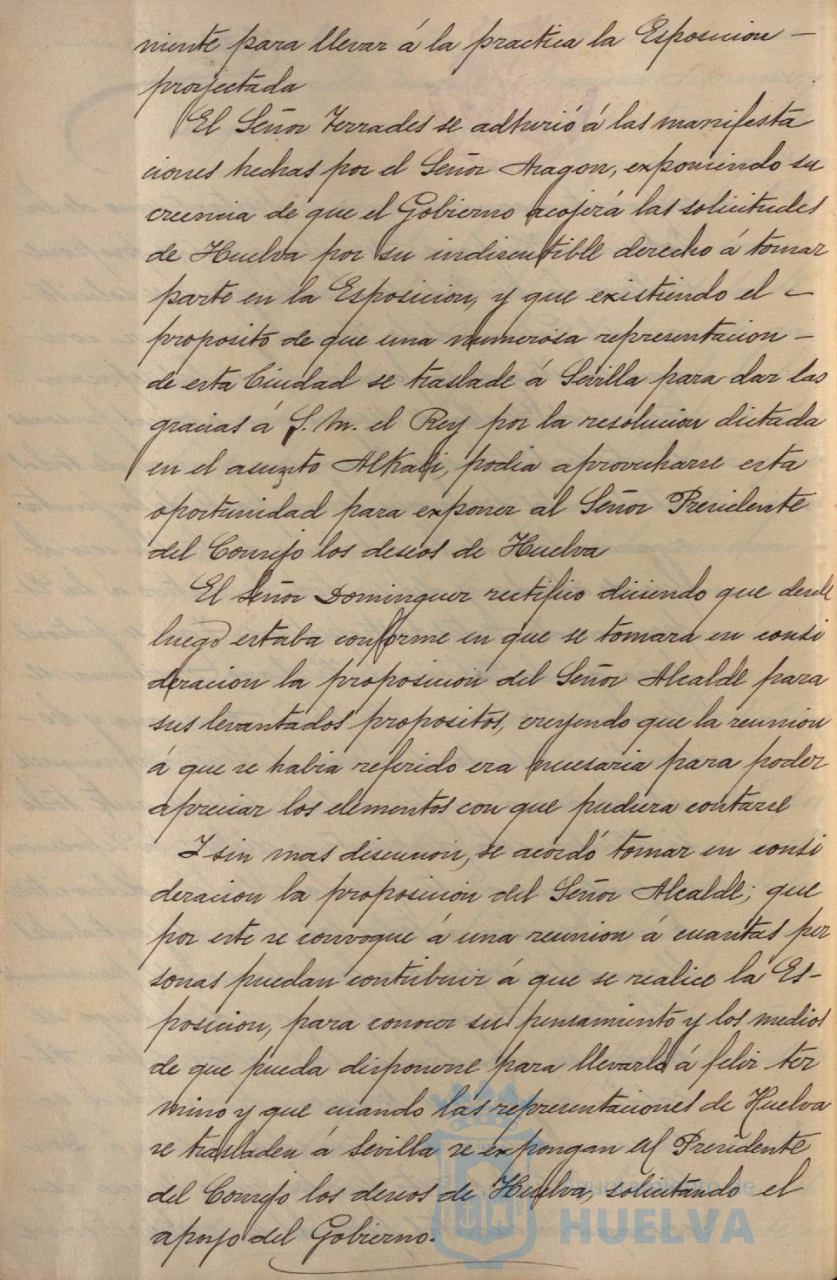 niente para llevar á la practica la Esposicion —
proyectada
El Señor Terrades se adhirió á las manifesta
ciones hechas por el Señor Aragon, exponiendo su
creencia de que el Gobierno acojerá las solicitudes
de Huelva por su indiscutible derecho á tomar
parte en la Esposicion, y que existiendo el —
proposito de que una numerosa representacion —
de esta Ciudad se traslade á Sevilla para dar las
gracias á S. M. el Rey por la resolucion dictada
en el asunto Alkali, podia aprovecharse esta
oportunidad para exponer al Señor Presidente
del Consejo los deseos de Huelva
El Señor Dominguez rectificó diciendo que desde
luego estaba conforme en que se tomara en consi
deracion la proposicion del Señor Alcalde para
sus levantados propositos, creyendo que la reunion
á que se habia referido era necesaria para poder
apreciar los elementos con que pudiera contarse
I sin mas discusion, se acordó tomar en consi
deracion la proposicion del Señor Alcalde; que
por este se convoque á una reunion á cuantas per
sonas puedan contribuir á que se realice la Es-
posicion, para conocer su pensamiento y los medios
de que pueda disponerse para llevarla á feliz ter
mino y que cuando las representaciones de Huelva
se trasladen á Sevilla se expongan al Presidente
del Consejo los deseos de Huelva, solicitando el
apoyo del Gobierno.
Ayuntamiento de
HUELVA